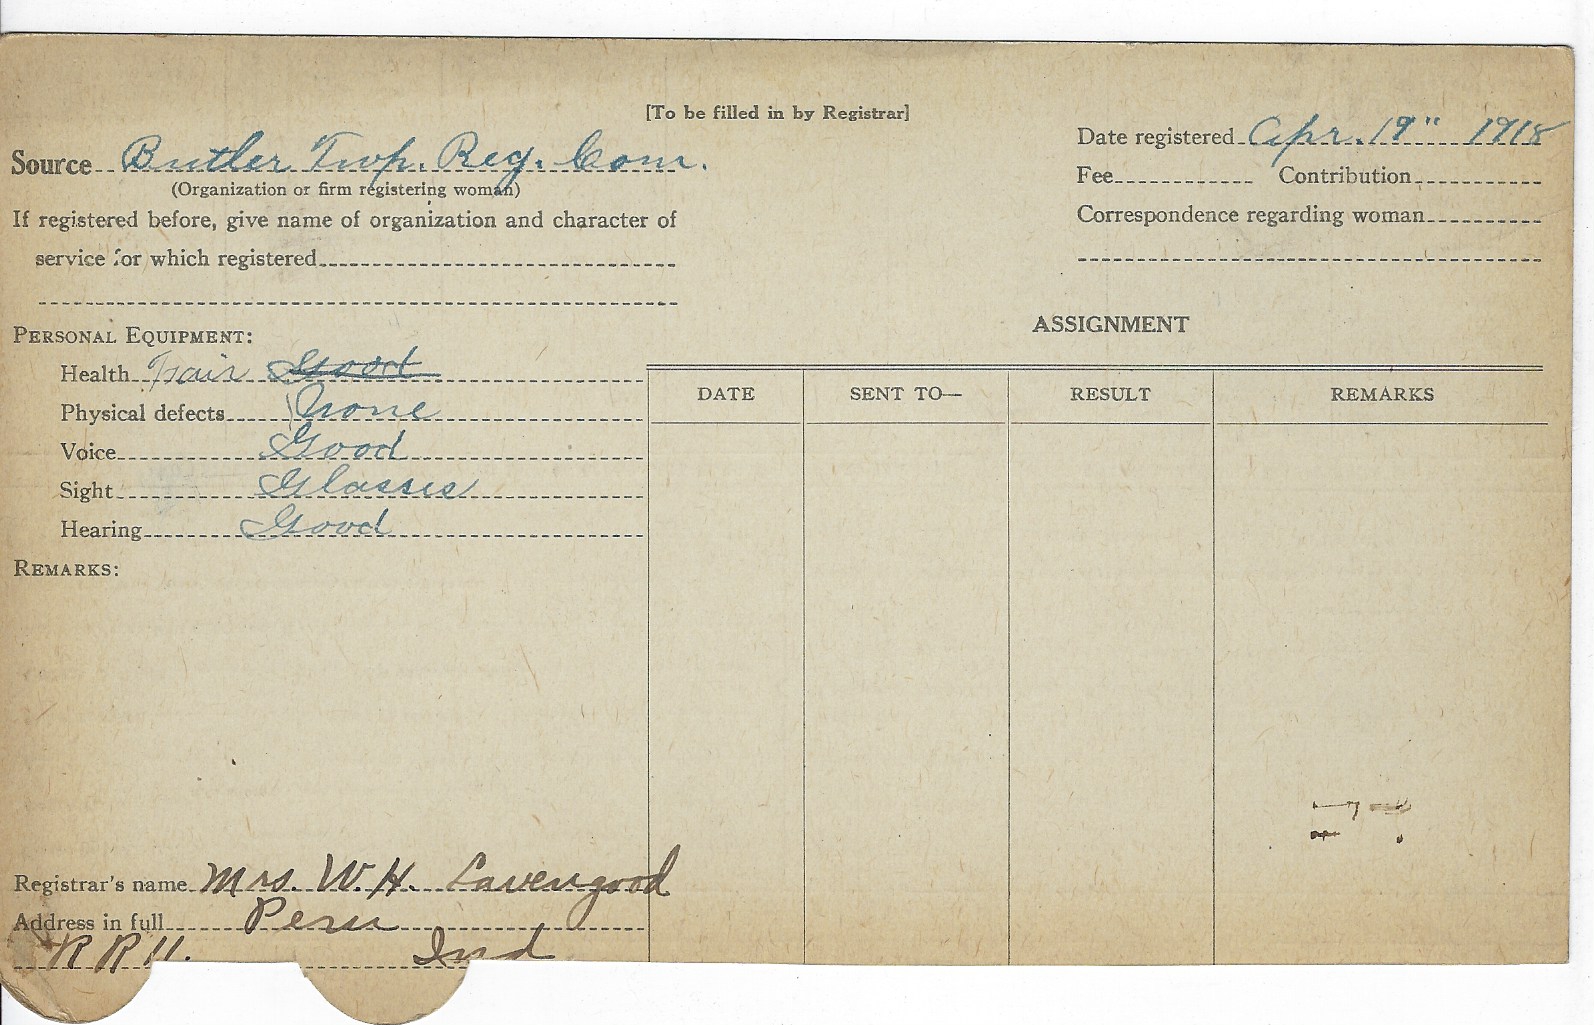 [To be filled in by Registrar]
Source Butler Twp. Reg. Com.
(Organization or firm registering woman)
If registered before, give name of organization and character of
service for which registered
Date registered Apr. 19" 1918
Fee Contribution
Correspondence regarding woman
PERSONAL EQUIPMENT:
Health Fair Good
Physical defects None
Voice Good
Sight Glasses
Hearing Good
REMARKS:
ASSIGNMENT
DATE SENT TO— RESULT REMARKS
Registrar's name Mrs. W. H. Lavengood
Address in full Peru
R R 11. Ind